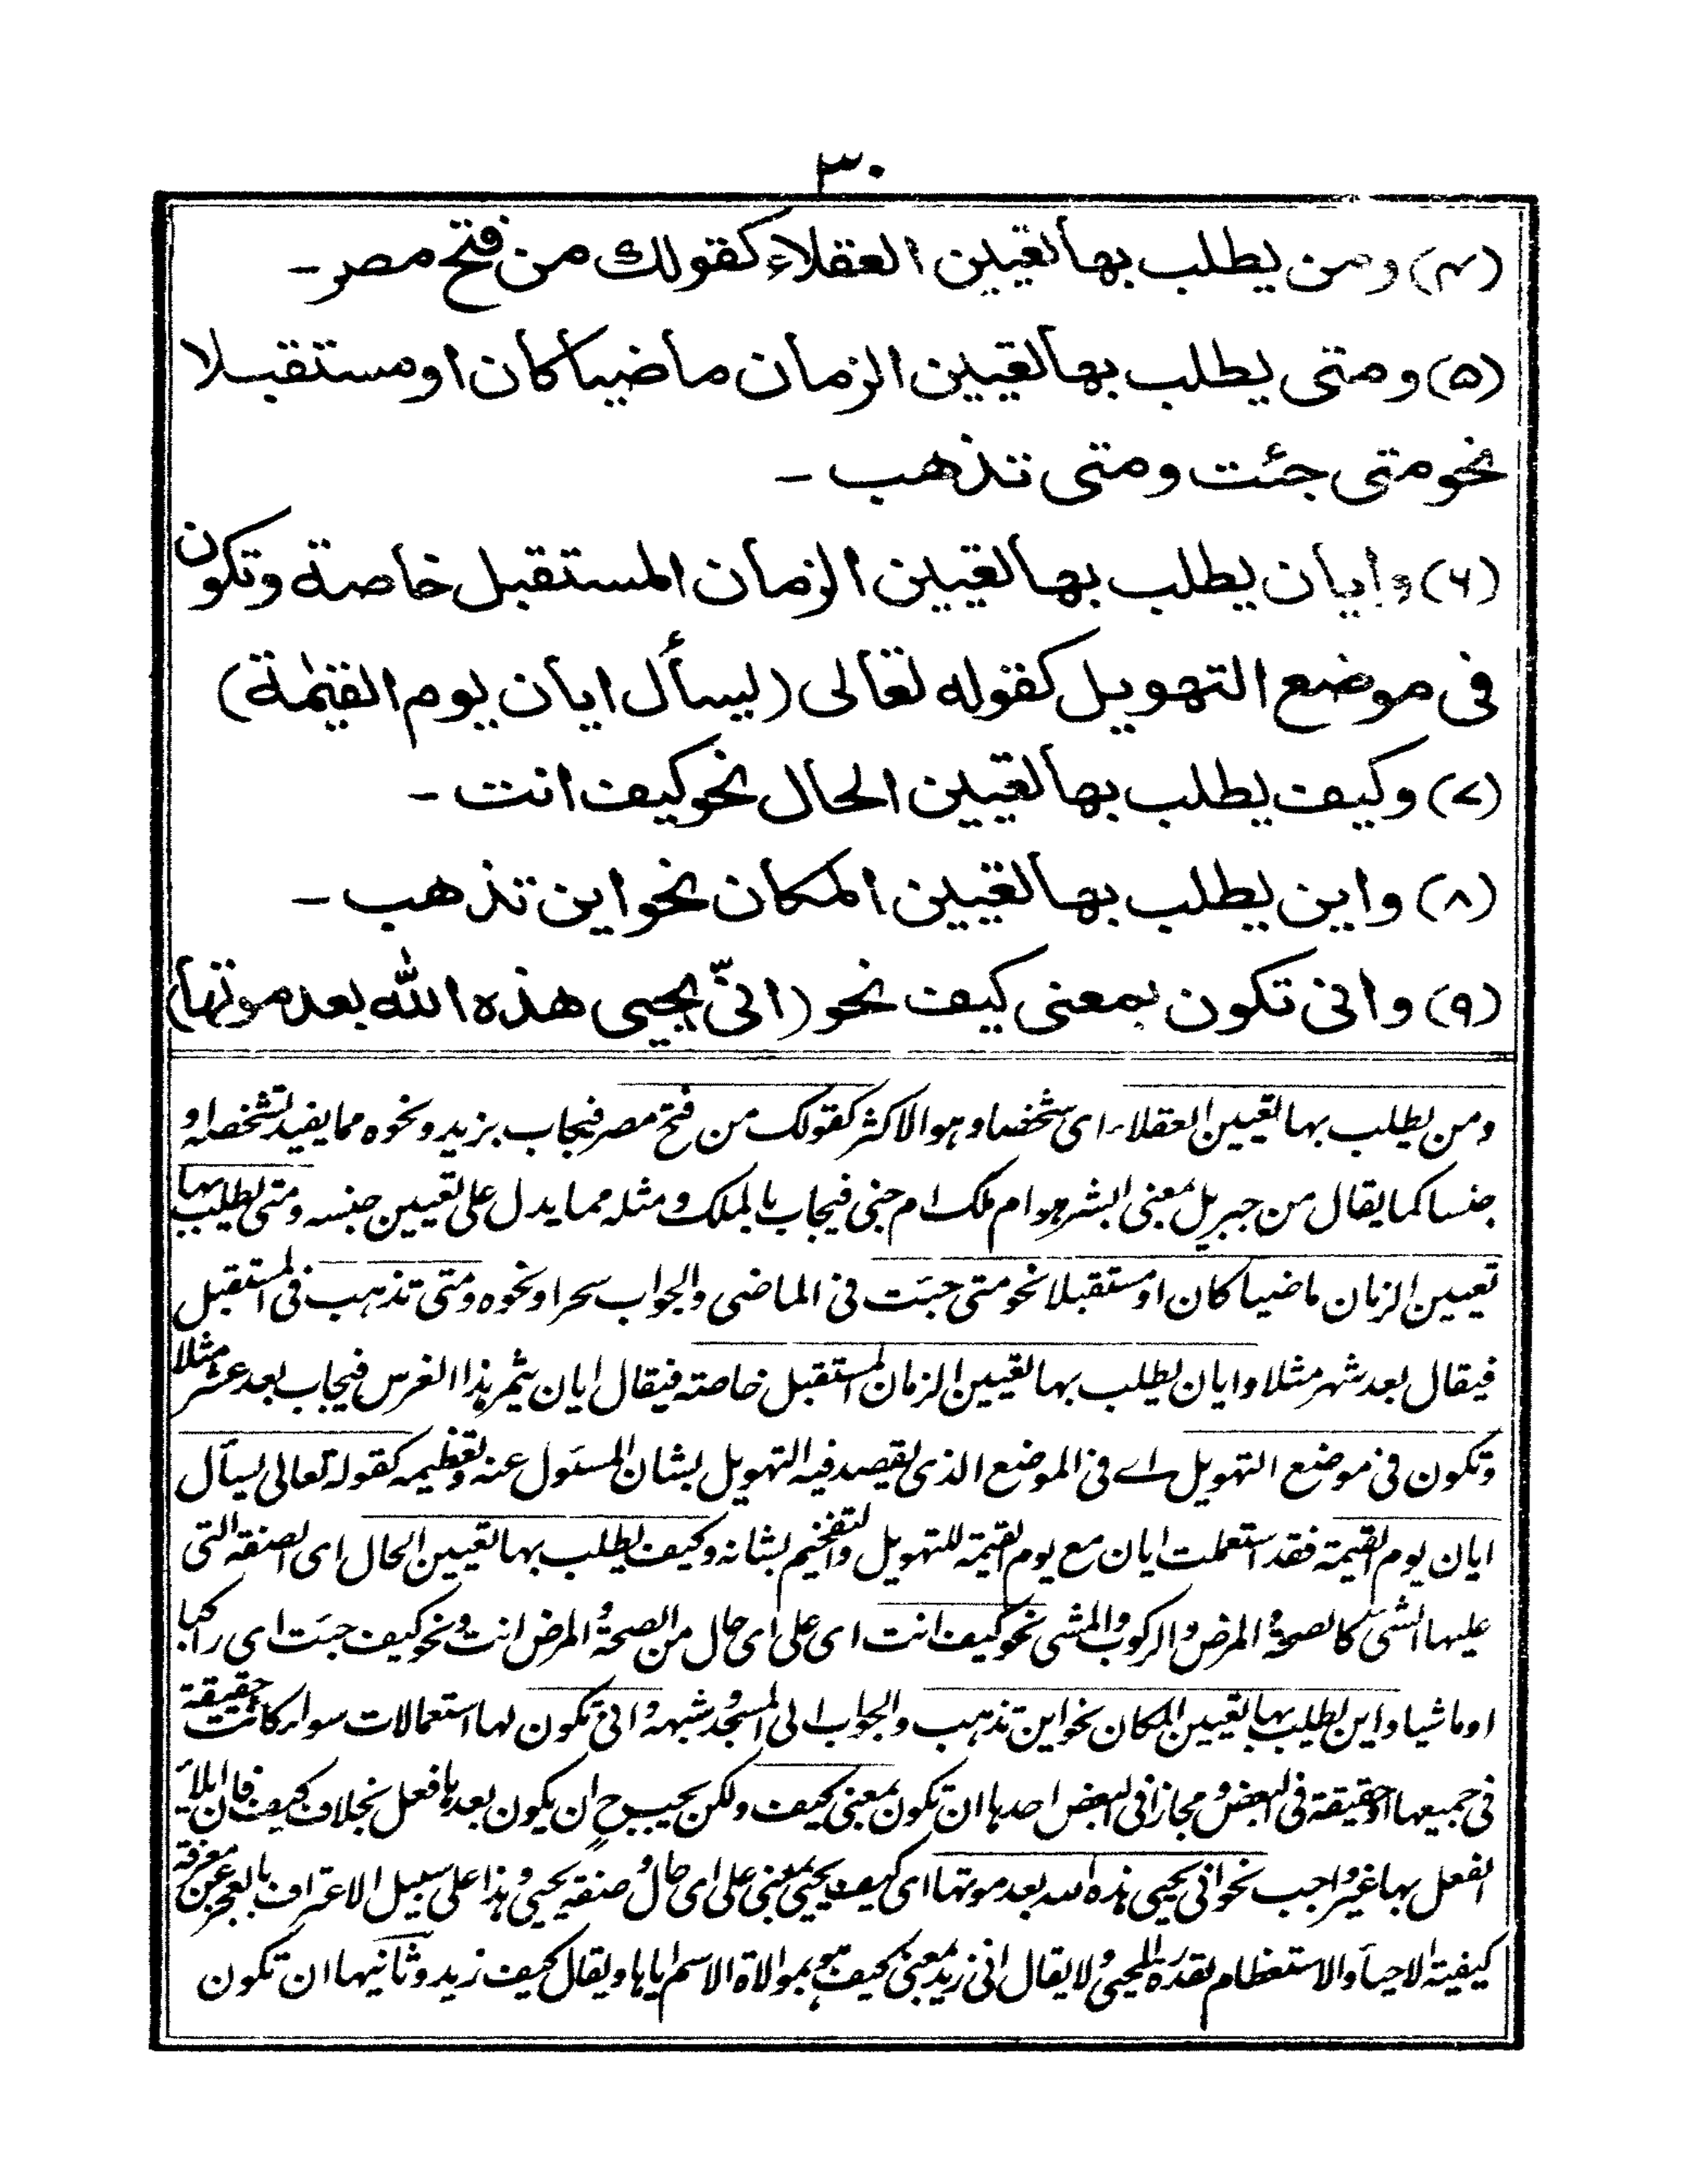 ٣٠
(٤) ومن يطلب بها تعيين العقلاء كقولك من فتح مصر -
(٥) ومتى يطلب بها تعيين الزمان ماضيا كان او مستقبلا
نحو متى جئت ومتى تذهب -
(٦) وايان يطلب بها تعيين الزمان المستقبل خاصة وتكون
فى موضع التهويل كقوله تعالى (يسأل ايان يوم القيٰمة)
(٧) وكيف يطلب بها تعيين الحال نحو كيف انت -
(٨) واين يطلب بها تعيين المكان نحو اين تذهب -
(٩) وانى تكون بمعنى كيف نحو (انّى يحيى هذه الله بعد موتها)
ومن يطلب بها تعيين العقلاء اى شخصا وهو الاكثر كقولك من فتح مصر فيجاب بزيد ونحوه مما يفيد تشخصه او
جنسا كما يقال من جبريل بمعنى ابشر هو ام ملك ام جنى فيجاب بالملك ومثله مما يدل على تعيين جنسه ومتى يطلب بها
تعيين الزمان ماضيا كان او مستقبلا نحو متى جئت فى الماضى والجواب سحرا ونحوه ومتى تذهب فى المستقبل
فيقال بعد شهر مثلا وايان يطلب بها تعيين الزمان المستقبل خاصة فيقال ايان يثمر هذا الغرس فيجاب بعد عشر مثلا
وتكون فى موضع التهويل اے فى الموضع الذى يقصد فيه التهويل بشان المسئول عنه وتعظيمه كقوله تعالى يسأل
ايان يوم القيمة فقد استعملت ايان مع يوم القيمة للتهويل والتفخيم بشانه وكيف يطلب بها تعيين الحال اى الصفة التى
عليها الشئ كالصحة والمرض والركوب والمشى نحو كيف انت اى على اى حال من الصحة والمرض انت ونحو كيف جئت اى راكبا
او ماشيا واين يطلب بها تعيين المكان نحو اين تذهب والجواب الى المسجد وشبهه وانى تكون لها استعمالات سواء كانت حقيقة
فى جميعها او حقيقة فى البعض ومجازا فى البعض احدها ان تكون بمعنى كيف ولكن يجب ح ان يكون بعدها فعل بخلاف كيف فان ايلاء
الفعل بها غير واجب نحو انى يحيى هذه الله بعد موتها اى كيف يحيى بمعنى على اى حال وصفة يحيى وهذا على سبيل الاعتراف بالعجز عن معرفة
كيفية الاحياء والاستعظام لقدرة المحيى ولا يقال انى زيد بمعنى كيف هو بموالاة الاسم اياها ويقال كيف زيد وثانيها ان تكون